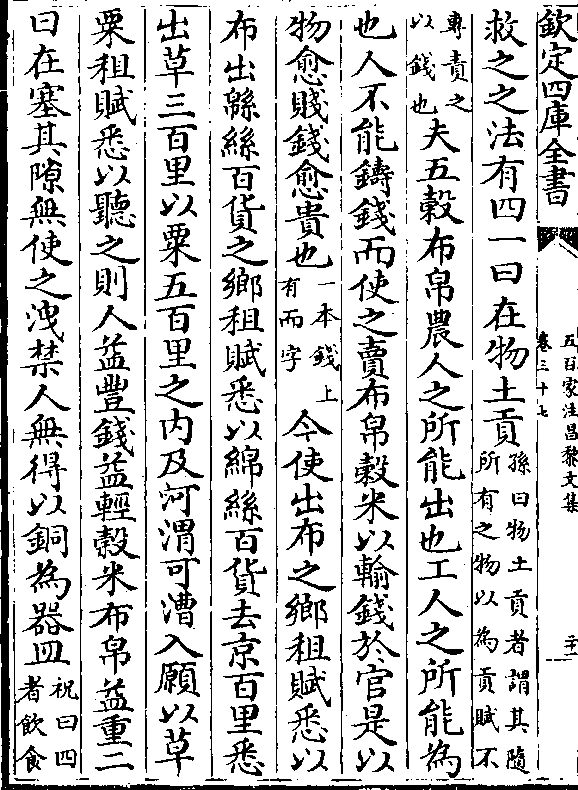 欽定四庫全書
五百家注昌黎文集
卷三十七
二十一
救之之法有四一曰在物土貢孫曰物土貢者謂其隨所有之物以為貢賦不
專責之以錢也夫五穀布帛農人之所能出也工人之所能為
也人不能鑄錢而使之賣布帛穀米以輸錢於官是以
物愈賤錢愈貴也一本錢上有而字今使出布之鄉租賦悉以
布出緜絲百貨之鄉租賦悉以綿絲百貨去京百里悉
出草三百里以粟五百里之内及河渭可漕入願以草
粟租賦悉以聽之則人益豐錢益輕穀米布帛益重二
曰在塞其隙無使之洩禁人無得以銅為器皿祝曰四者飲食